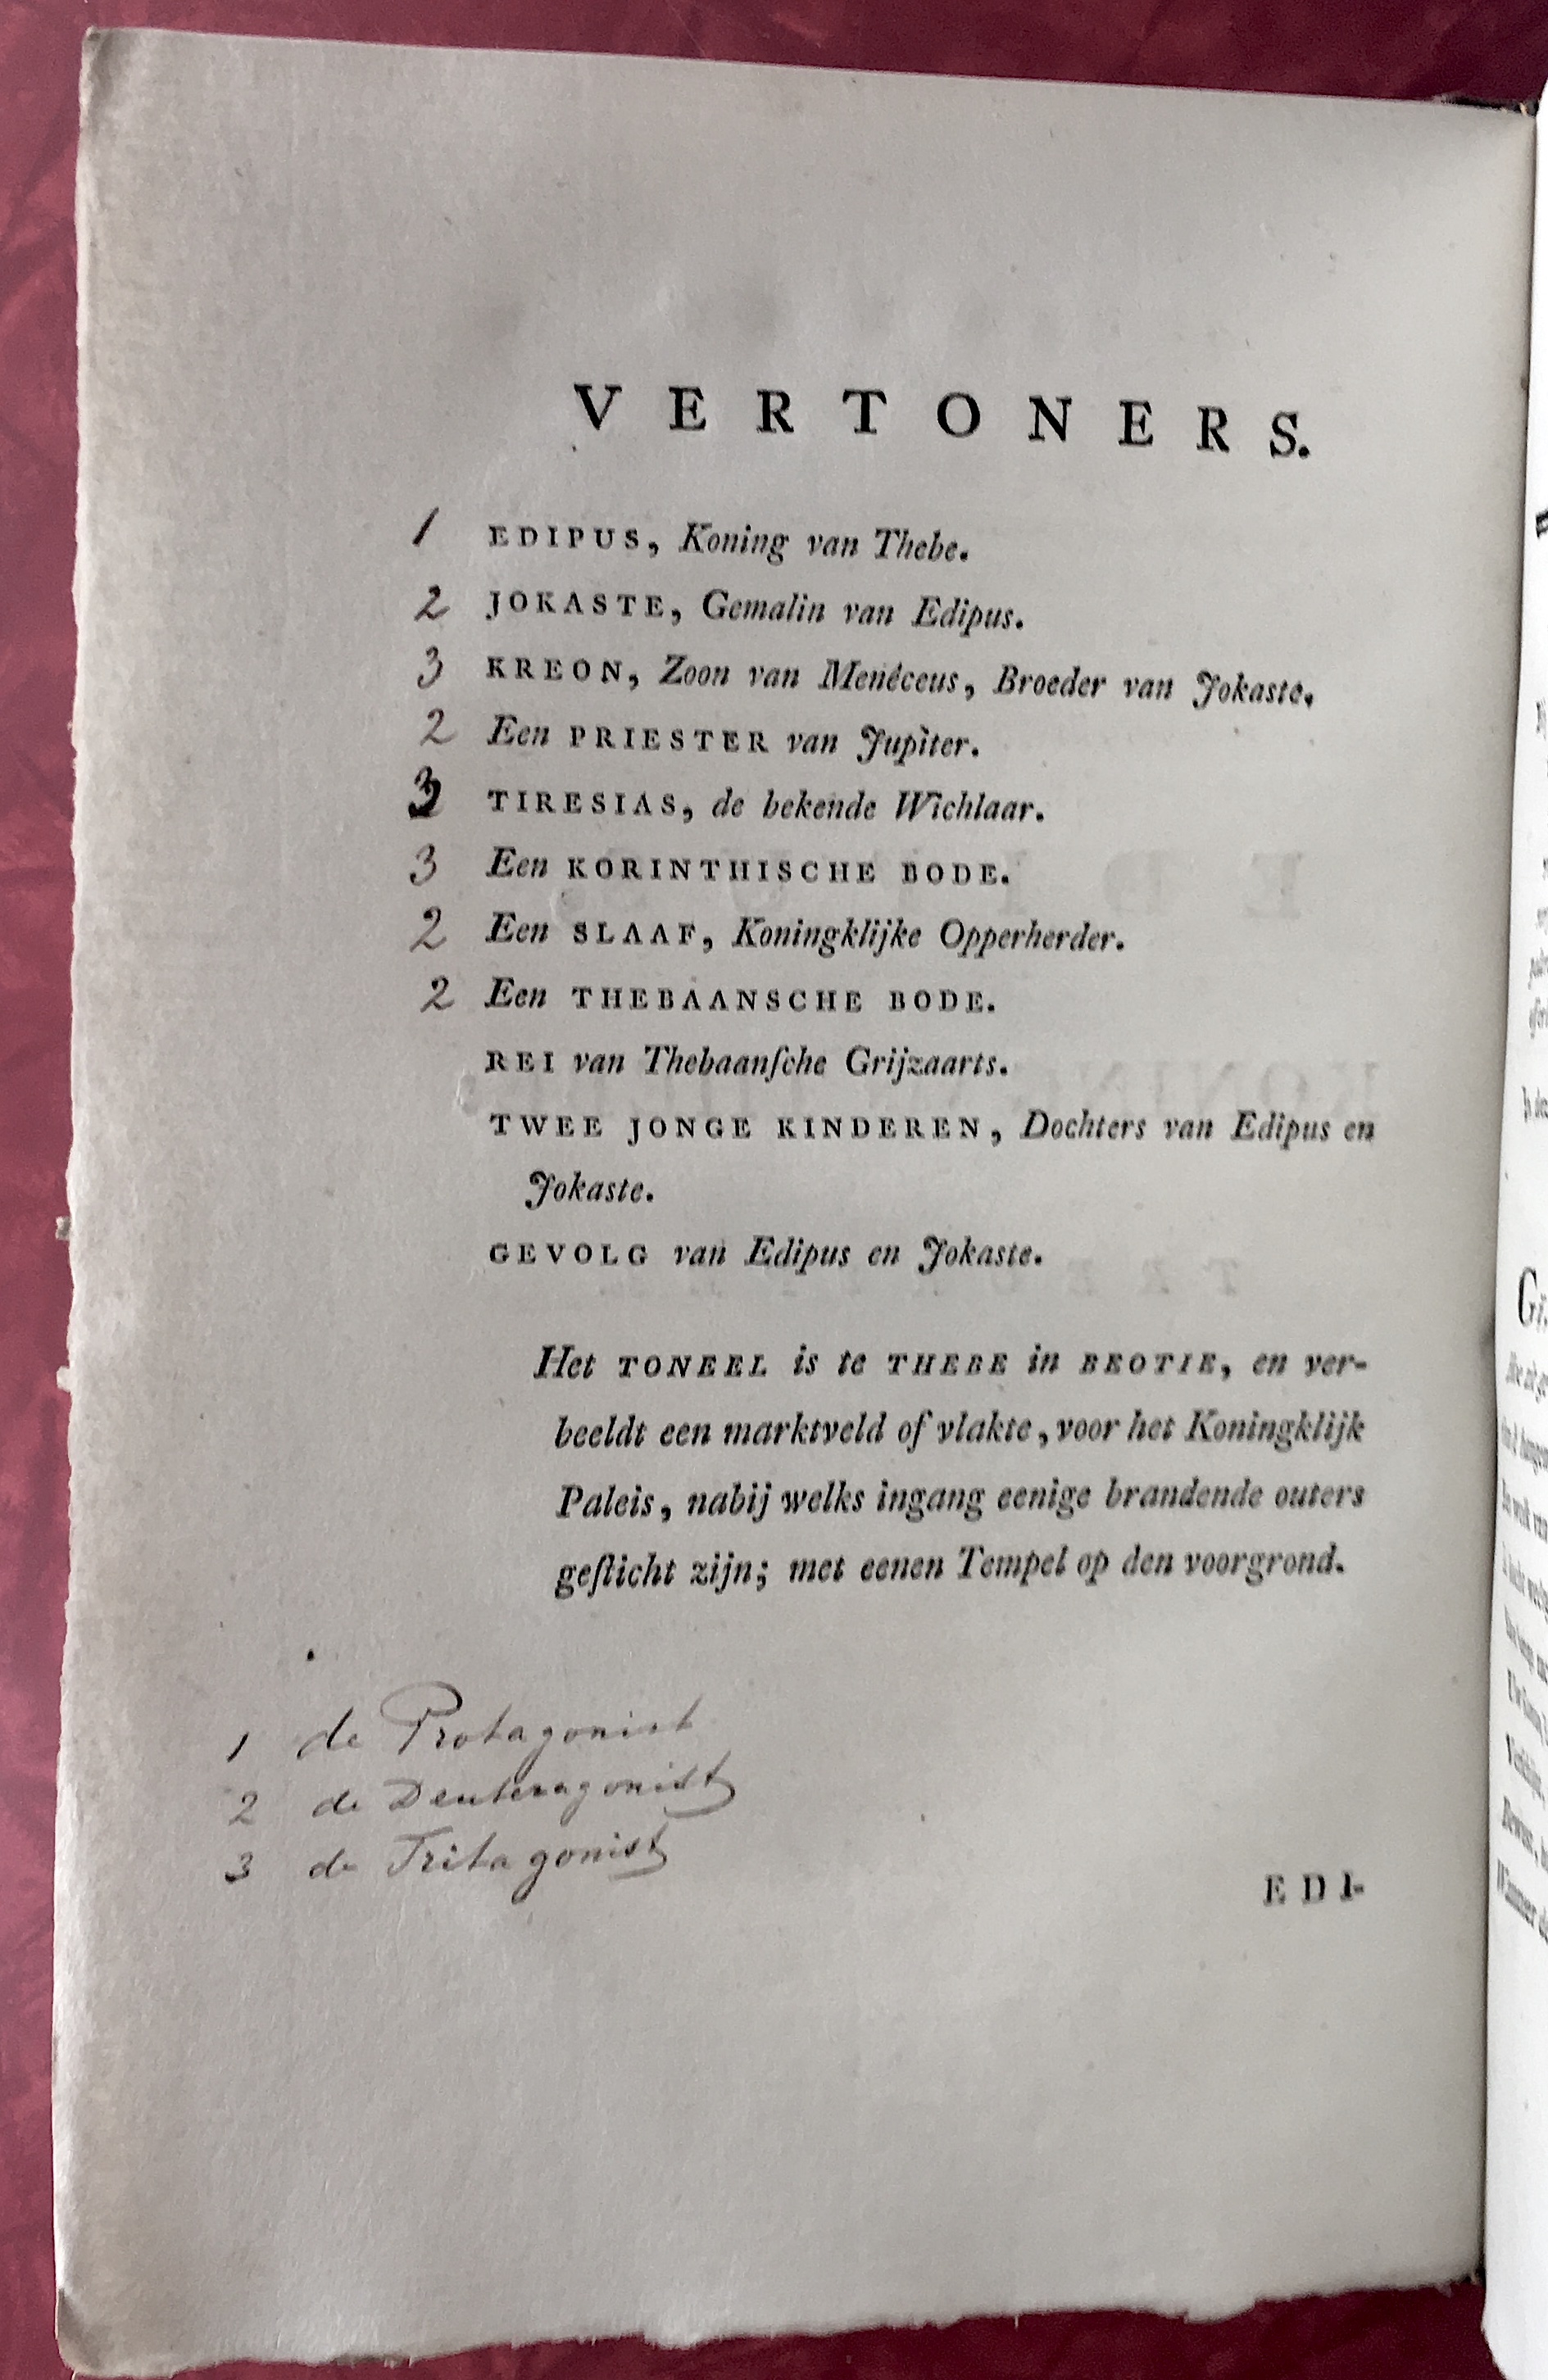 VERTONERS.
1 EDIPUS, Koning van Thebe.
2 JOKASTE, Gemalin van Edipus.
3 KREON, Zoon van Menéceus, Broeder van Jokaste.
2 Een PRIESTER van Jupiter.
3 TIRESIAS, de bekende Wichlaar.
3 Een KORINTHISCHE BODE.
2 Een SLAAF, Koningklijke Opperherder.
2 Een THEBAANSCHE BODE.
REI van Thebaanſche Grijzaarts.
TWEE JONGE KINDEREN, Dochters van Edipus en
Jokaste.
GEVOLG van Edipus en Jokaste.
Het TONEEL is te THEBE in BEOTIE, en ver-
beeldt een marktveld of vlakte, voor het Koningklijk
Paleis, nabij welks ingang eenige brandende outers
geſticht zijn; met eenen Tempel op den voorgrond.
1 de Protagonist
2 de Deuteragonist
3 de Tritagonist
EDI-